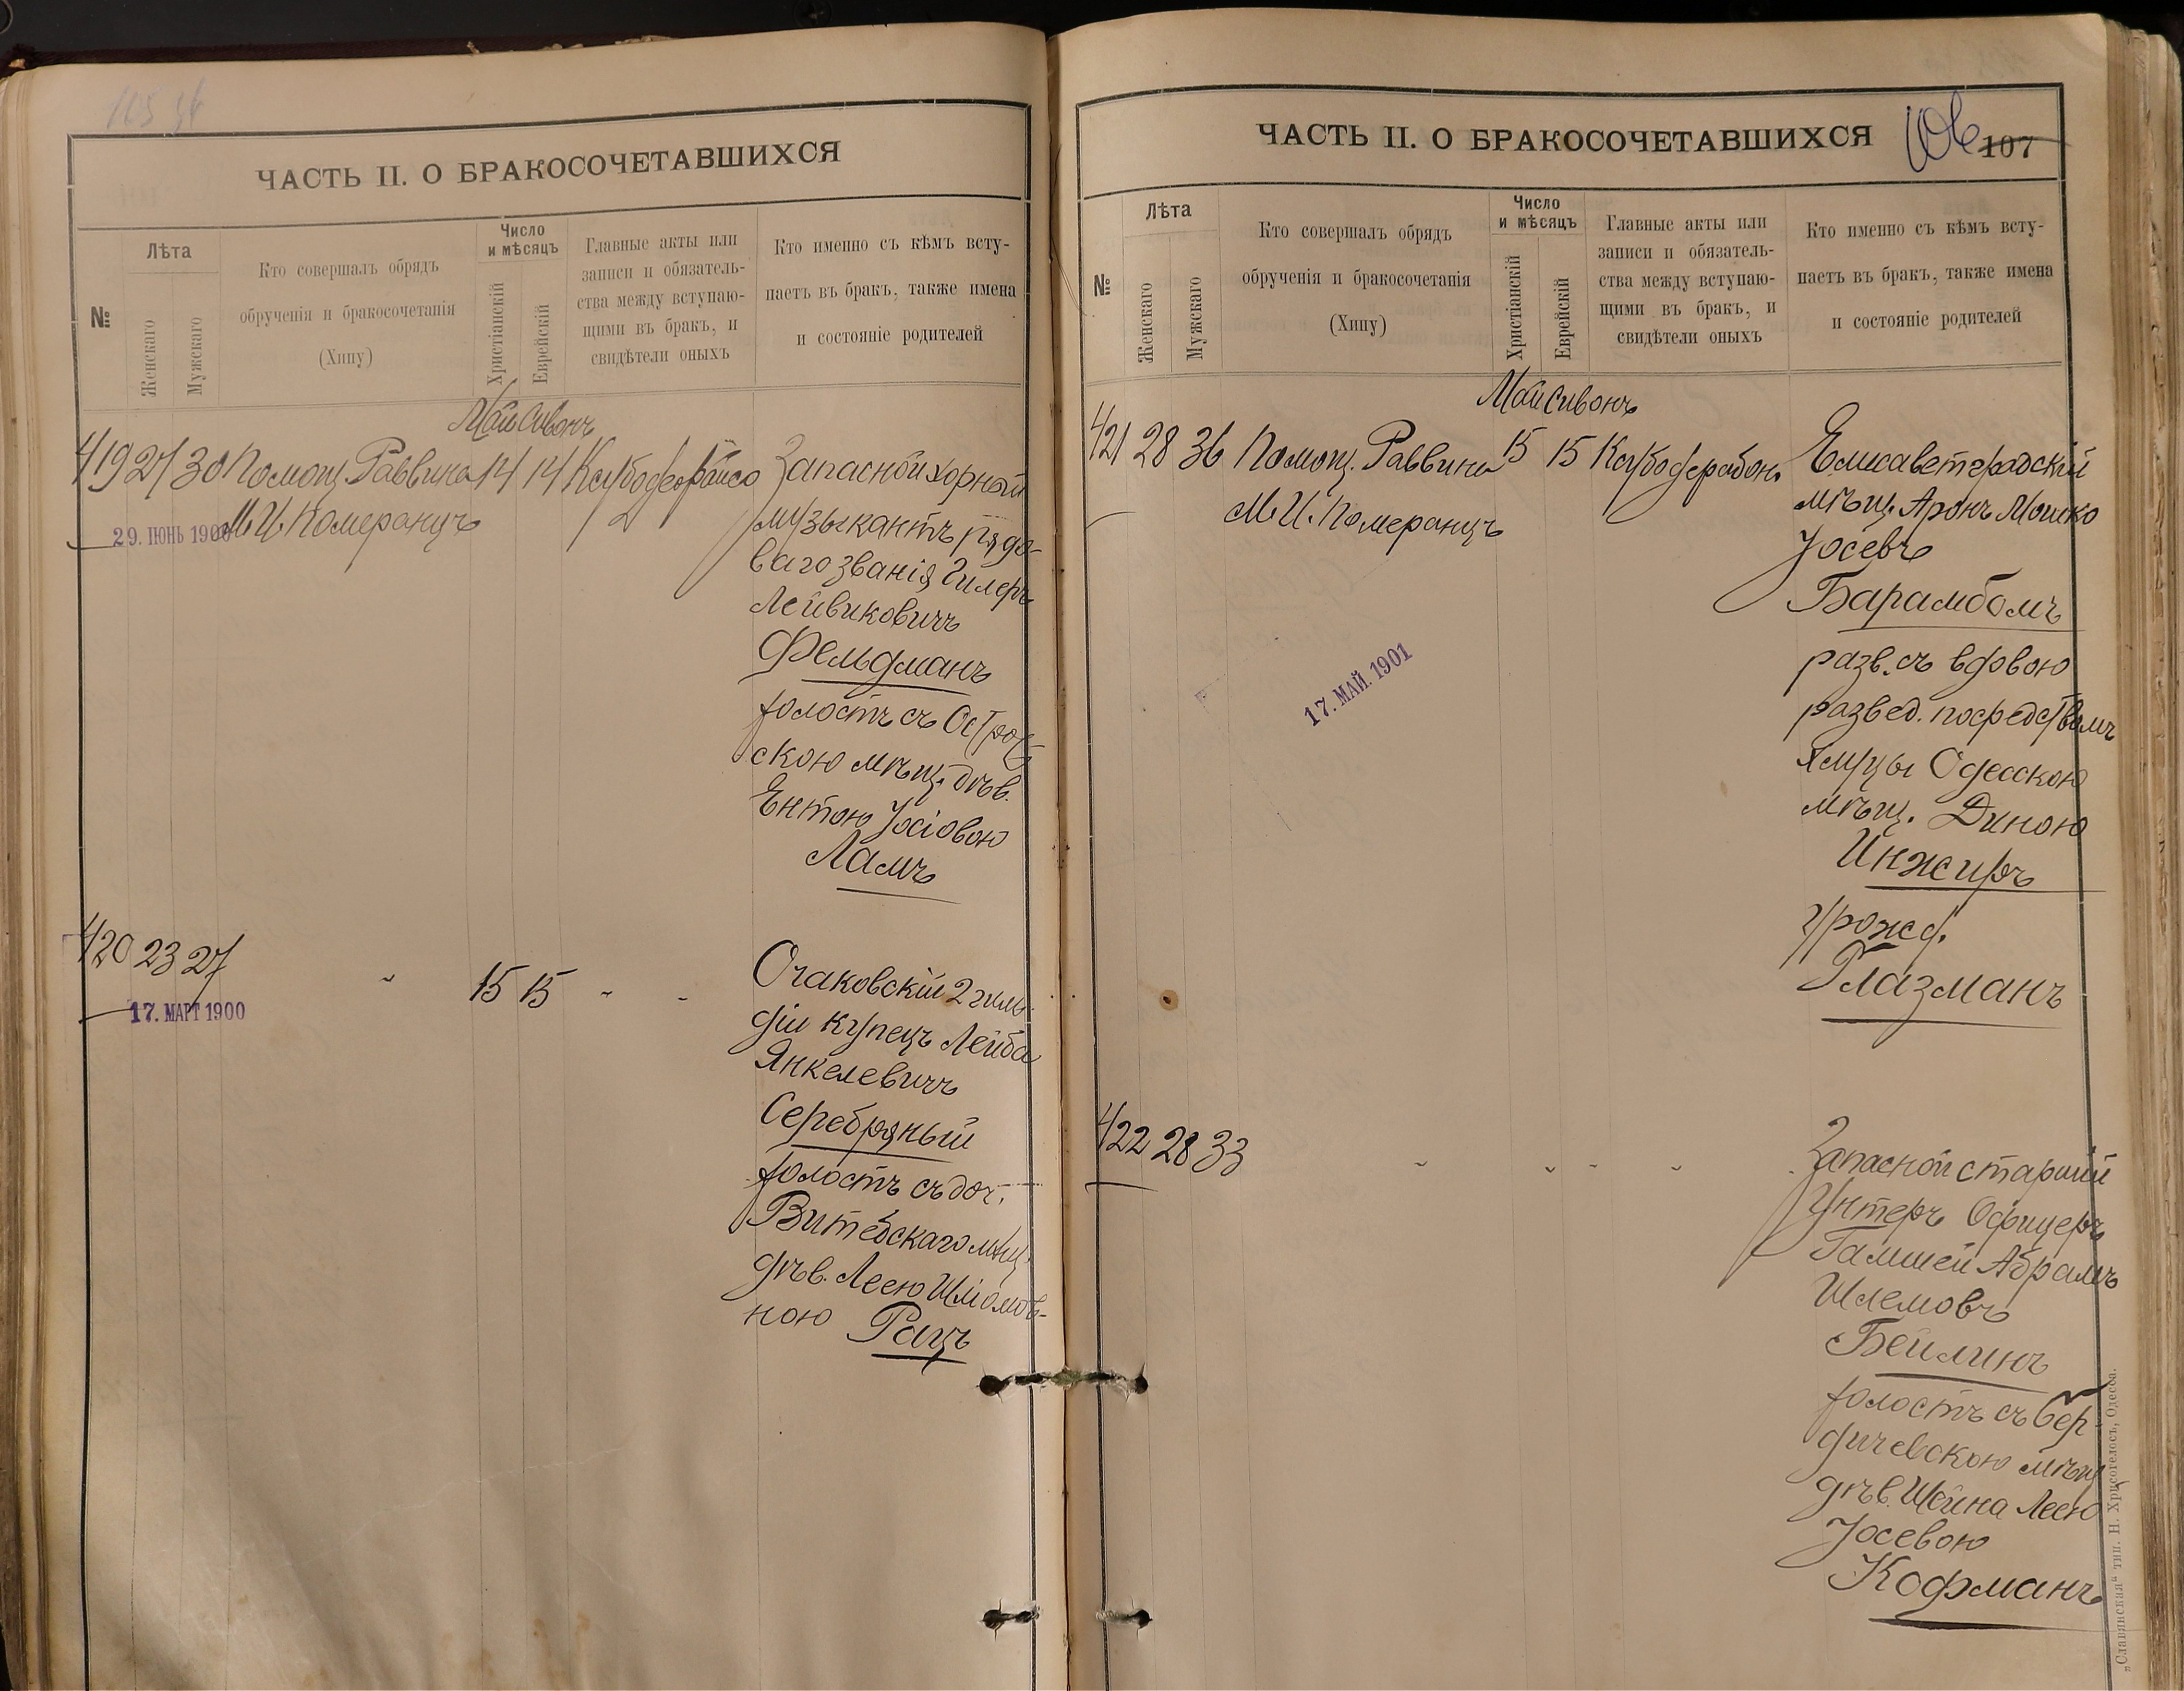 ЧАСТЬ II. О БРАКОСОЧЕТАВШИХСЯ
№
Лѣта
Женскаго
Мужскаго
Кто совершалъ обрядъ
обрученія и бракосочетанія
(Хипу)
Число
и мѣсяцъ
Христіанскій
Еврейскій
Главные акты или
записи и обязатель-
ства между вступаю-
щими въ бракъ, и
свидѣтели оныхъ
Кто именно съ кѣмъ всту-
паетъ въ бракъ, также имена
и состояніе родителей
Май Сивонъ
419 27 30 Помощ. Раввина 14 14
М. И. Померанцъ
29. ІЮНЬ 1900
Запасной хорный
музыкантъ рядо-
ваго званія Гилеръ
Лейвиковичъ
Фельдманъ
холостъ съ Острог-
скою мѣщ. дѣв.
Ентою Іосіовою
Ламъ
420 23 27 " 15 15 " "
17. МАРТ 1900
Очаковскій 2 гиль-
діи купецъ Лейба
Янкелевичъ
Серебряный
холостъ съ доч.
Витебскаго мѣщ.
дѣв. Леею Шліомов-
ною Рацъ
ЧАСТЬ II. О БРАКОСОЧЕТАВШИХСЯ
106 107
№
Лѣта
Женскаго
Мужскаго
Кто совершалъ обрядъ
обрученія и бракосочетанія
(Хипу)
Число
и мѣсяцъ
Христіанскій
Еврейскій
Главные акты или
записи и обязатель-
ства между вступаю-
щими въ бракъ, и
свидѣтели оныхъ
Кто именно съ кѣмъ всту-
паетъ въ бракъ, также имена
и состояніе родителей
Май Сивонъ
421 28 36 Помощ. Раввина 15 15
М. И. Померанцъ
17. МАЙ. 1901
Елисаветградскій
мѣщ. Аронъ Мошко
Іосевъ
Барамбомъ
разв. съ вдовою
развед. посредствомъ
Ямуцы Одесскою
мѣщ. Диною
Инжиръ
урожд.
Глазманъ
422 28 33 " " " "
Запасной старшій
Унтеръ Офицеръ
Гамшей Абрамъ
Шлемовъ
Бейлинъ
холостъ съ Бер-
дичевскою мѣщ.
дѣв. Шейна Леею
Іосевою
Кофманъ
„Славянская“ тип. Н. Хрисогелосъ, Одесса.